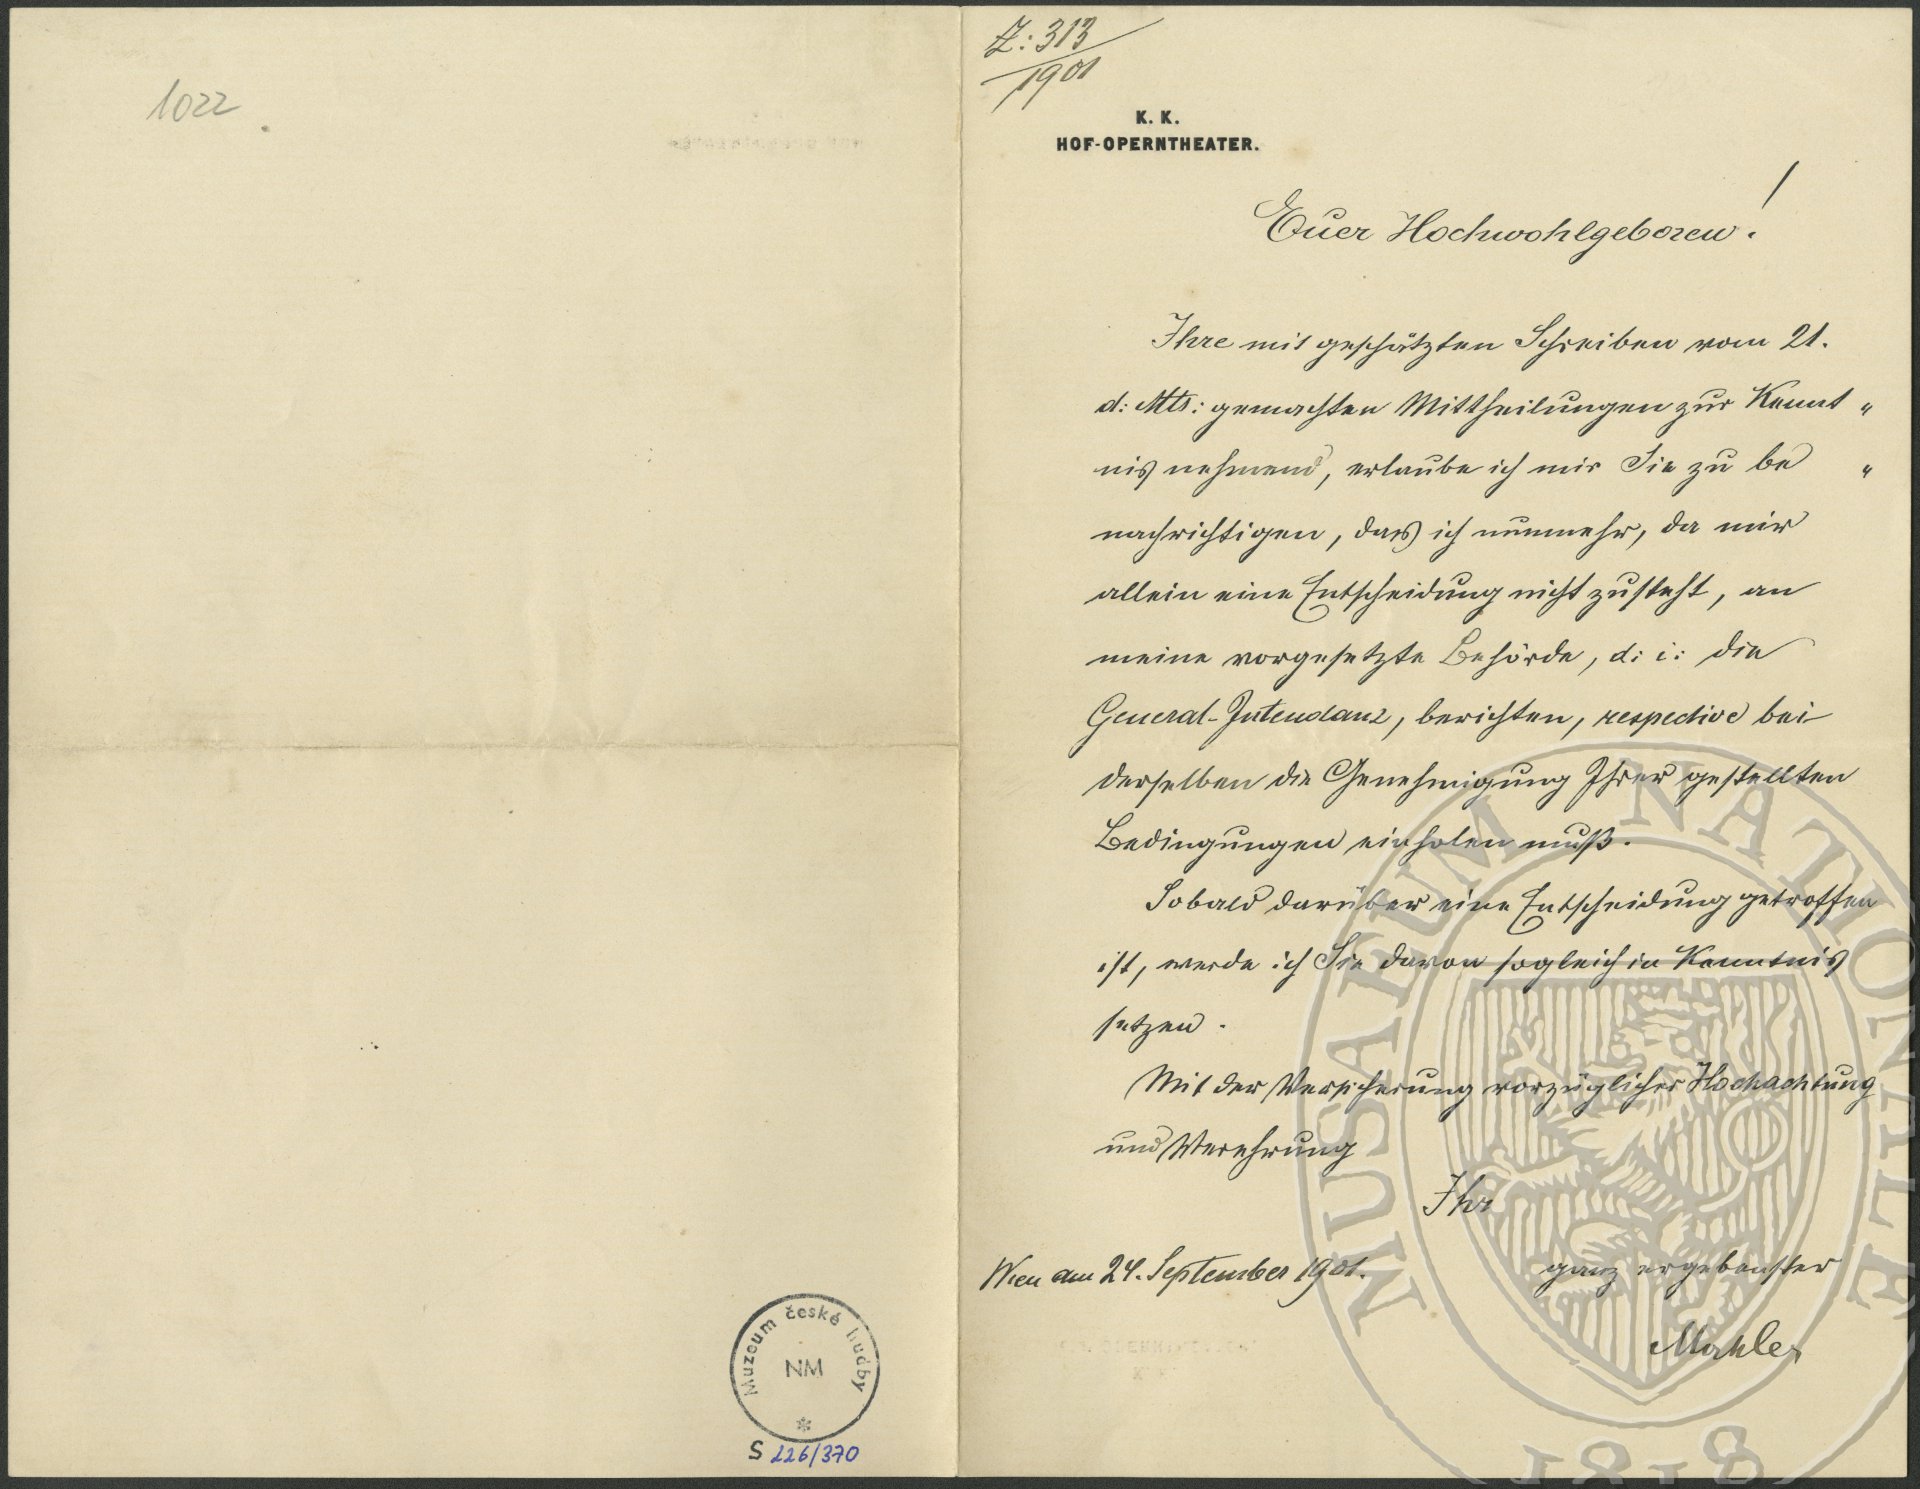 1022
Muzeum české hudby
NM
S 226/370
Z: 313
1901
K. K.
HOF-OPERNTHEATER.
Euer Hochwohlgeboren!
Ihre mit geschätzten Schreiben vom 21.
d: Mts: gemachten Mittheilungen zur Kennt„
nis nehmend, erlaube ich mir Sie zu be„
nachrichtigen, dass ich nunmehr, da mir
allein eine Entscheidung nicht zusteht, an
meine vorgesetzte Behörde, d: i: die
General-Intendanz, berichten, respective bei
derselben die Genehmigung Ihrer gestellten
Bedingungen einholen muß.
Sobald darüber eine Entscheidung getroffen
ist, werde ich Sie davon sogleich in Kenntnis
setzen.
Mit der Versicherung vorzüglicher Hochachtung
und Verehrung
Ihr
Wien am 24. September 1901.
ganz ergebenster
Mahler
MUSAEUM NATIONALE
1818